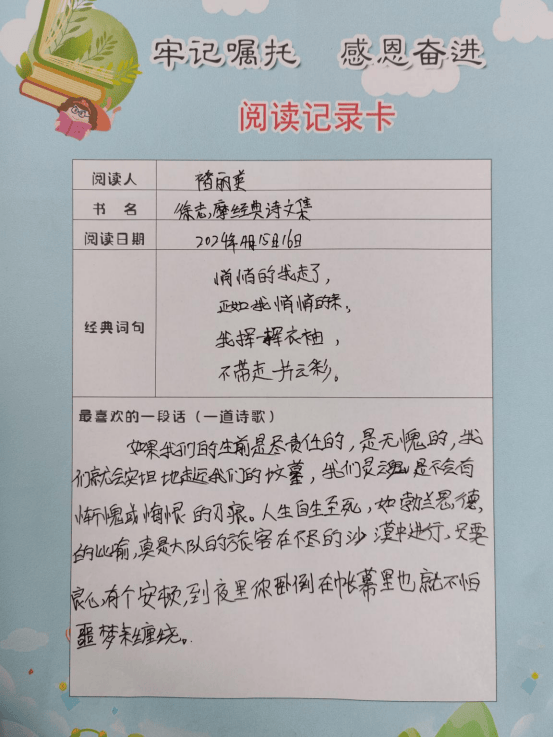 牢记嘱托 感恩奋进
阅读记录卡
阅读人 陪丽英
书名 徐志摩经典诗文集
阅读日期 2024年4月15日16日
经典词句
悄悄的我走了,
正如我悄悄的来,
我挥一挥衣袖,
不带走一片云彩。
最喜欢的一段话(一道诗歌)
如果我们的生前是尽责任的,是无愧的,我
们就会安坦地走近我们的坟墓,我们灵魂是不会有
惭愧或悔恨的刀痕。人生自生至死,如勃兰恩德,
的比喻,真是大队的旅客在不尽的沙漠中进行,只要
良心有个安顿,到夜里你卧倒在帐幕里也就不怕
噩梦来缠绕。